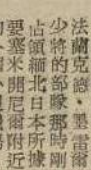 法蘭克德・墨雷爾
少將的部隊那時剛
占領緬北日本所據
要塞米開尼爾附近